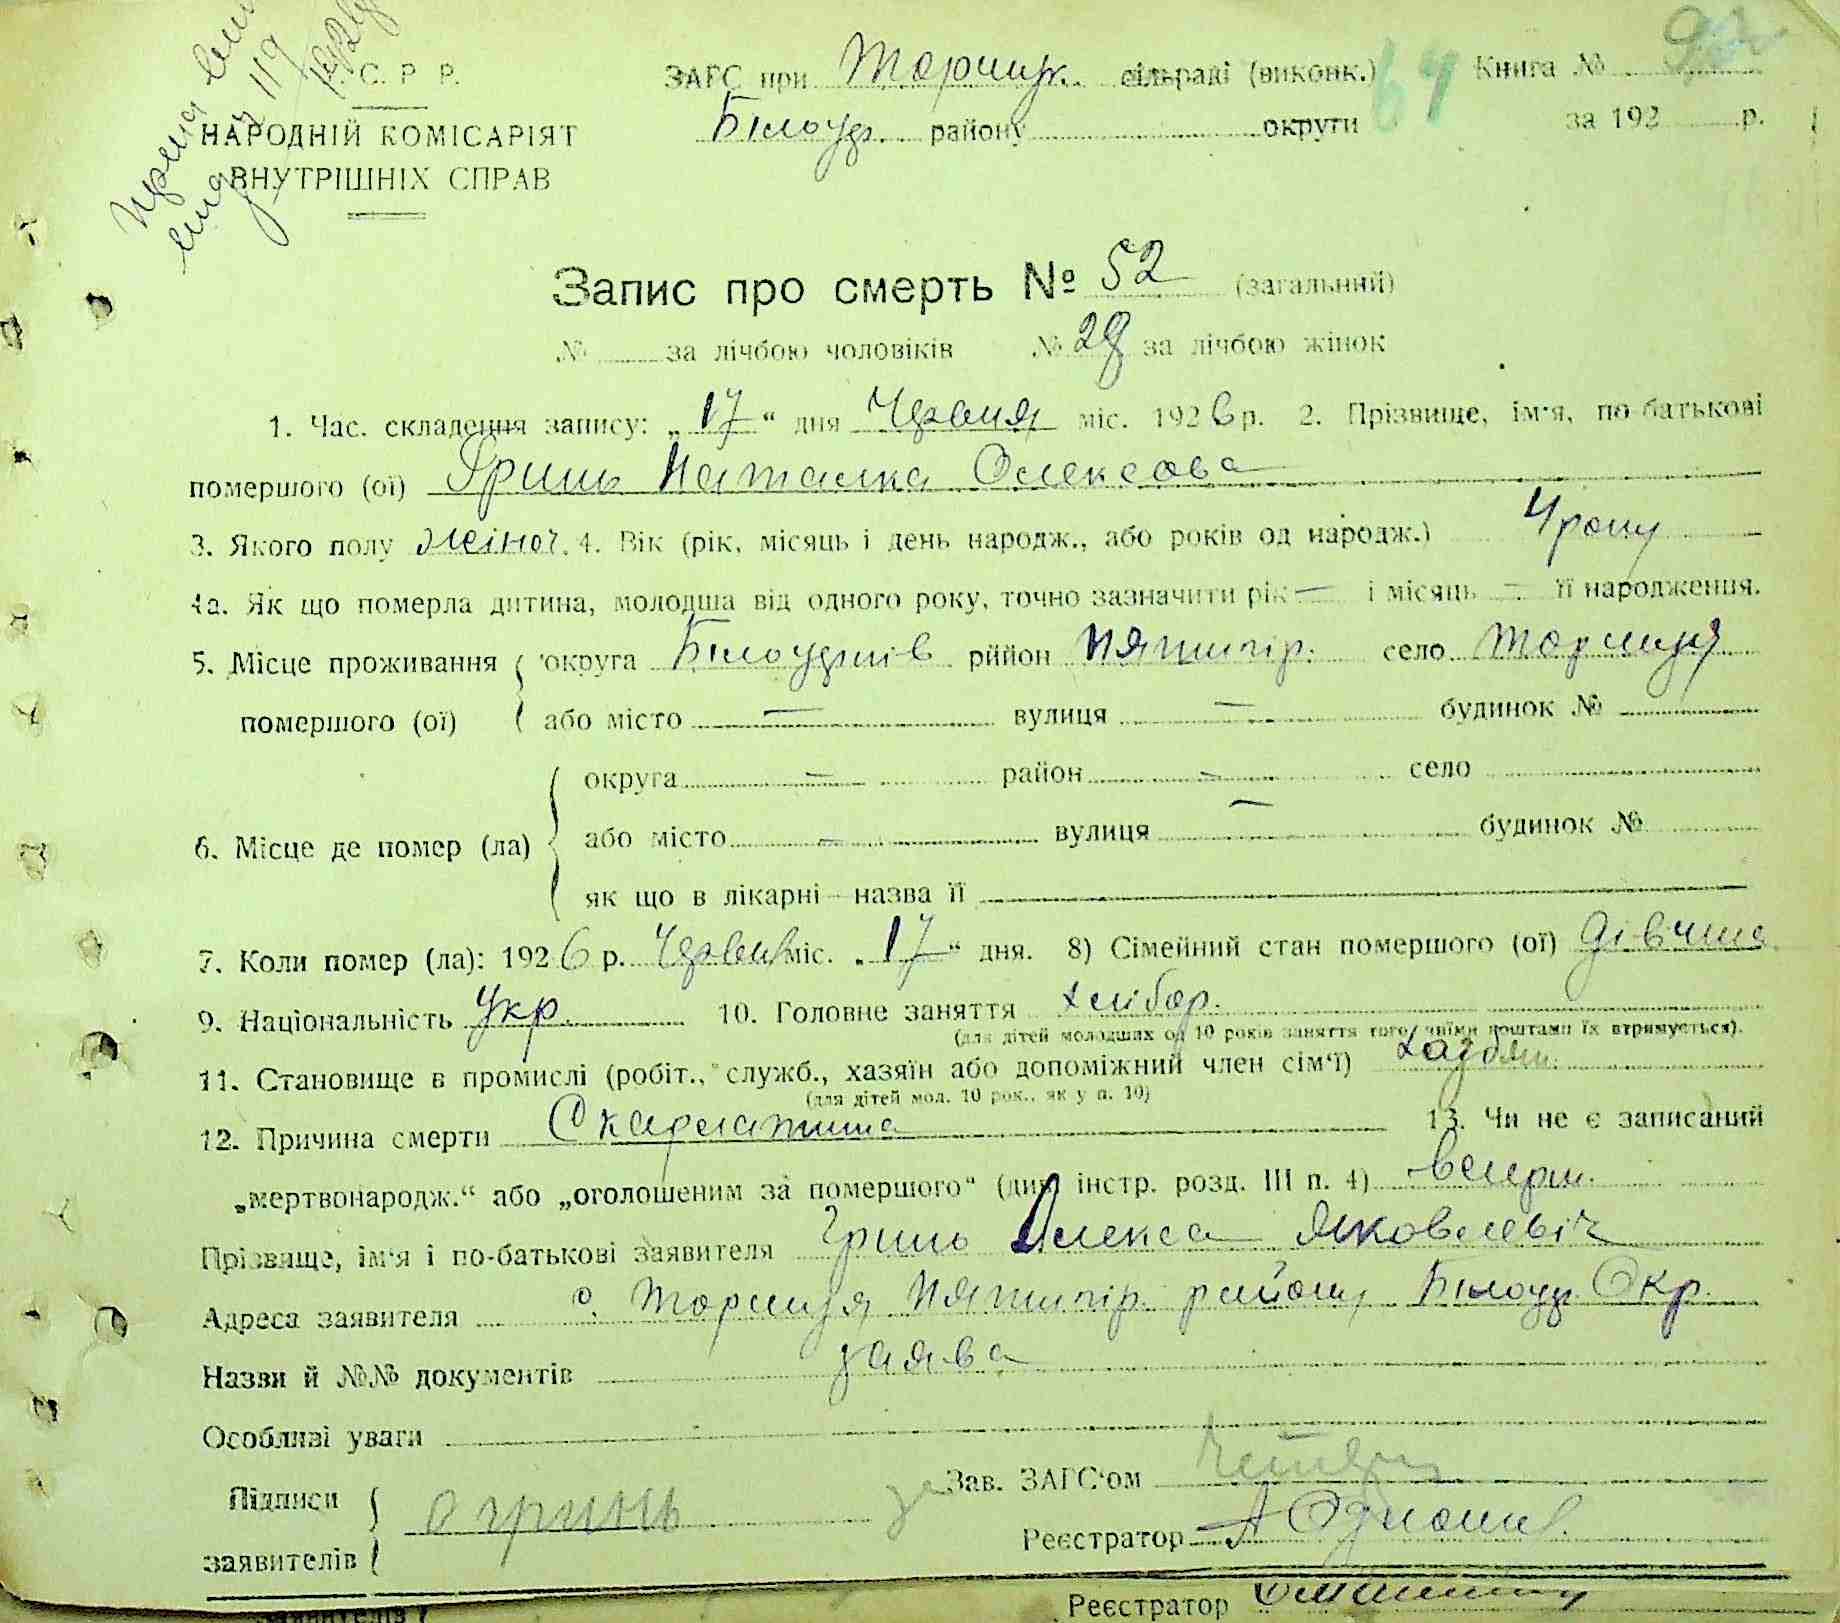 С. Р. Р.
ЗАГС при Торчиц. сільраді (виконк.) 64 Книга №
НАРОДНІЙ КОМІСАРІЯТ Білоцр. району округи за 192 р.
ВНУТРІШНІХ СПРАВ
Запис про смерть № 52 (загальний)
№ за лічбою чоловіків № 28 за лічбою жінок
1. Час. складення запису: „17“ дня Червня міс. 1926 р. 2. Прізвище, ім'я, по-батькові
помершого (ої) Гринь Наталка Олексова
3. Якого полу жіноч. 4. Вік (рік, місяць і день народж., або років од народж.) 4 роки
4а. Як що померла дитина, молодша від одного року, точно зазначити рік — і місяць — її народження.
5. Місце проживання округа Білоцерків район Пятигір. село Торчиця
помершого (ої) або місто — вулиця — будинок №
округа — район — село
6. Місце де помер (ла) або місто — вулиця — будинок №
як що в лікарні—назва її
7. Коли помер (ла): 1926 р. Червня міс. „17“ дня. 8) Сімейний стан помершого (ої) дівчина
9. Національність Укр. 10. Головне заняття хлібор.
(для дітей молодших од 10 років заняття того, чиїми коштами їх втримується).
11. Становище в промислі (робіт., служб., хазяїн або допоміжний член сім'ї) хазяїн.
(для дітей мол. 10 рок., як у п. 10)
12. Причина смерти Скарлатина 13. Чи не є записаний
„мертвонародж.“ або „оголошеним за помершого“ (див. інстр. розд. III п. 4)
Прізвище, ім'я і по-батькові заявителя Гринь Олекса Яковлевіч
Адреса заявителя с. Торчиця Пятигір. району Білоцр. Окр.
Назви й №№ документів заява
Особливі уваги
Підписи за Зав. ЗАГС'ом
заявителів о гринь Реєстратор
заявителів Реєстратор